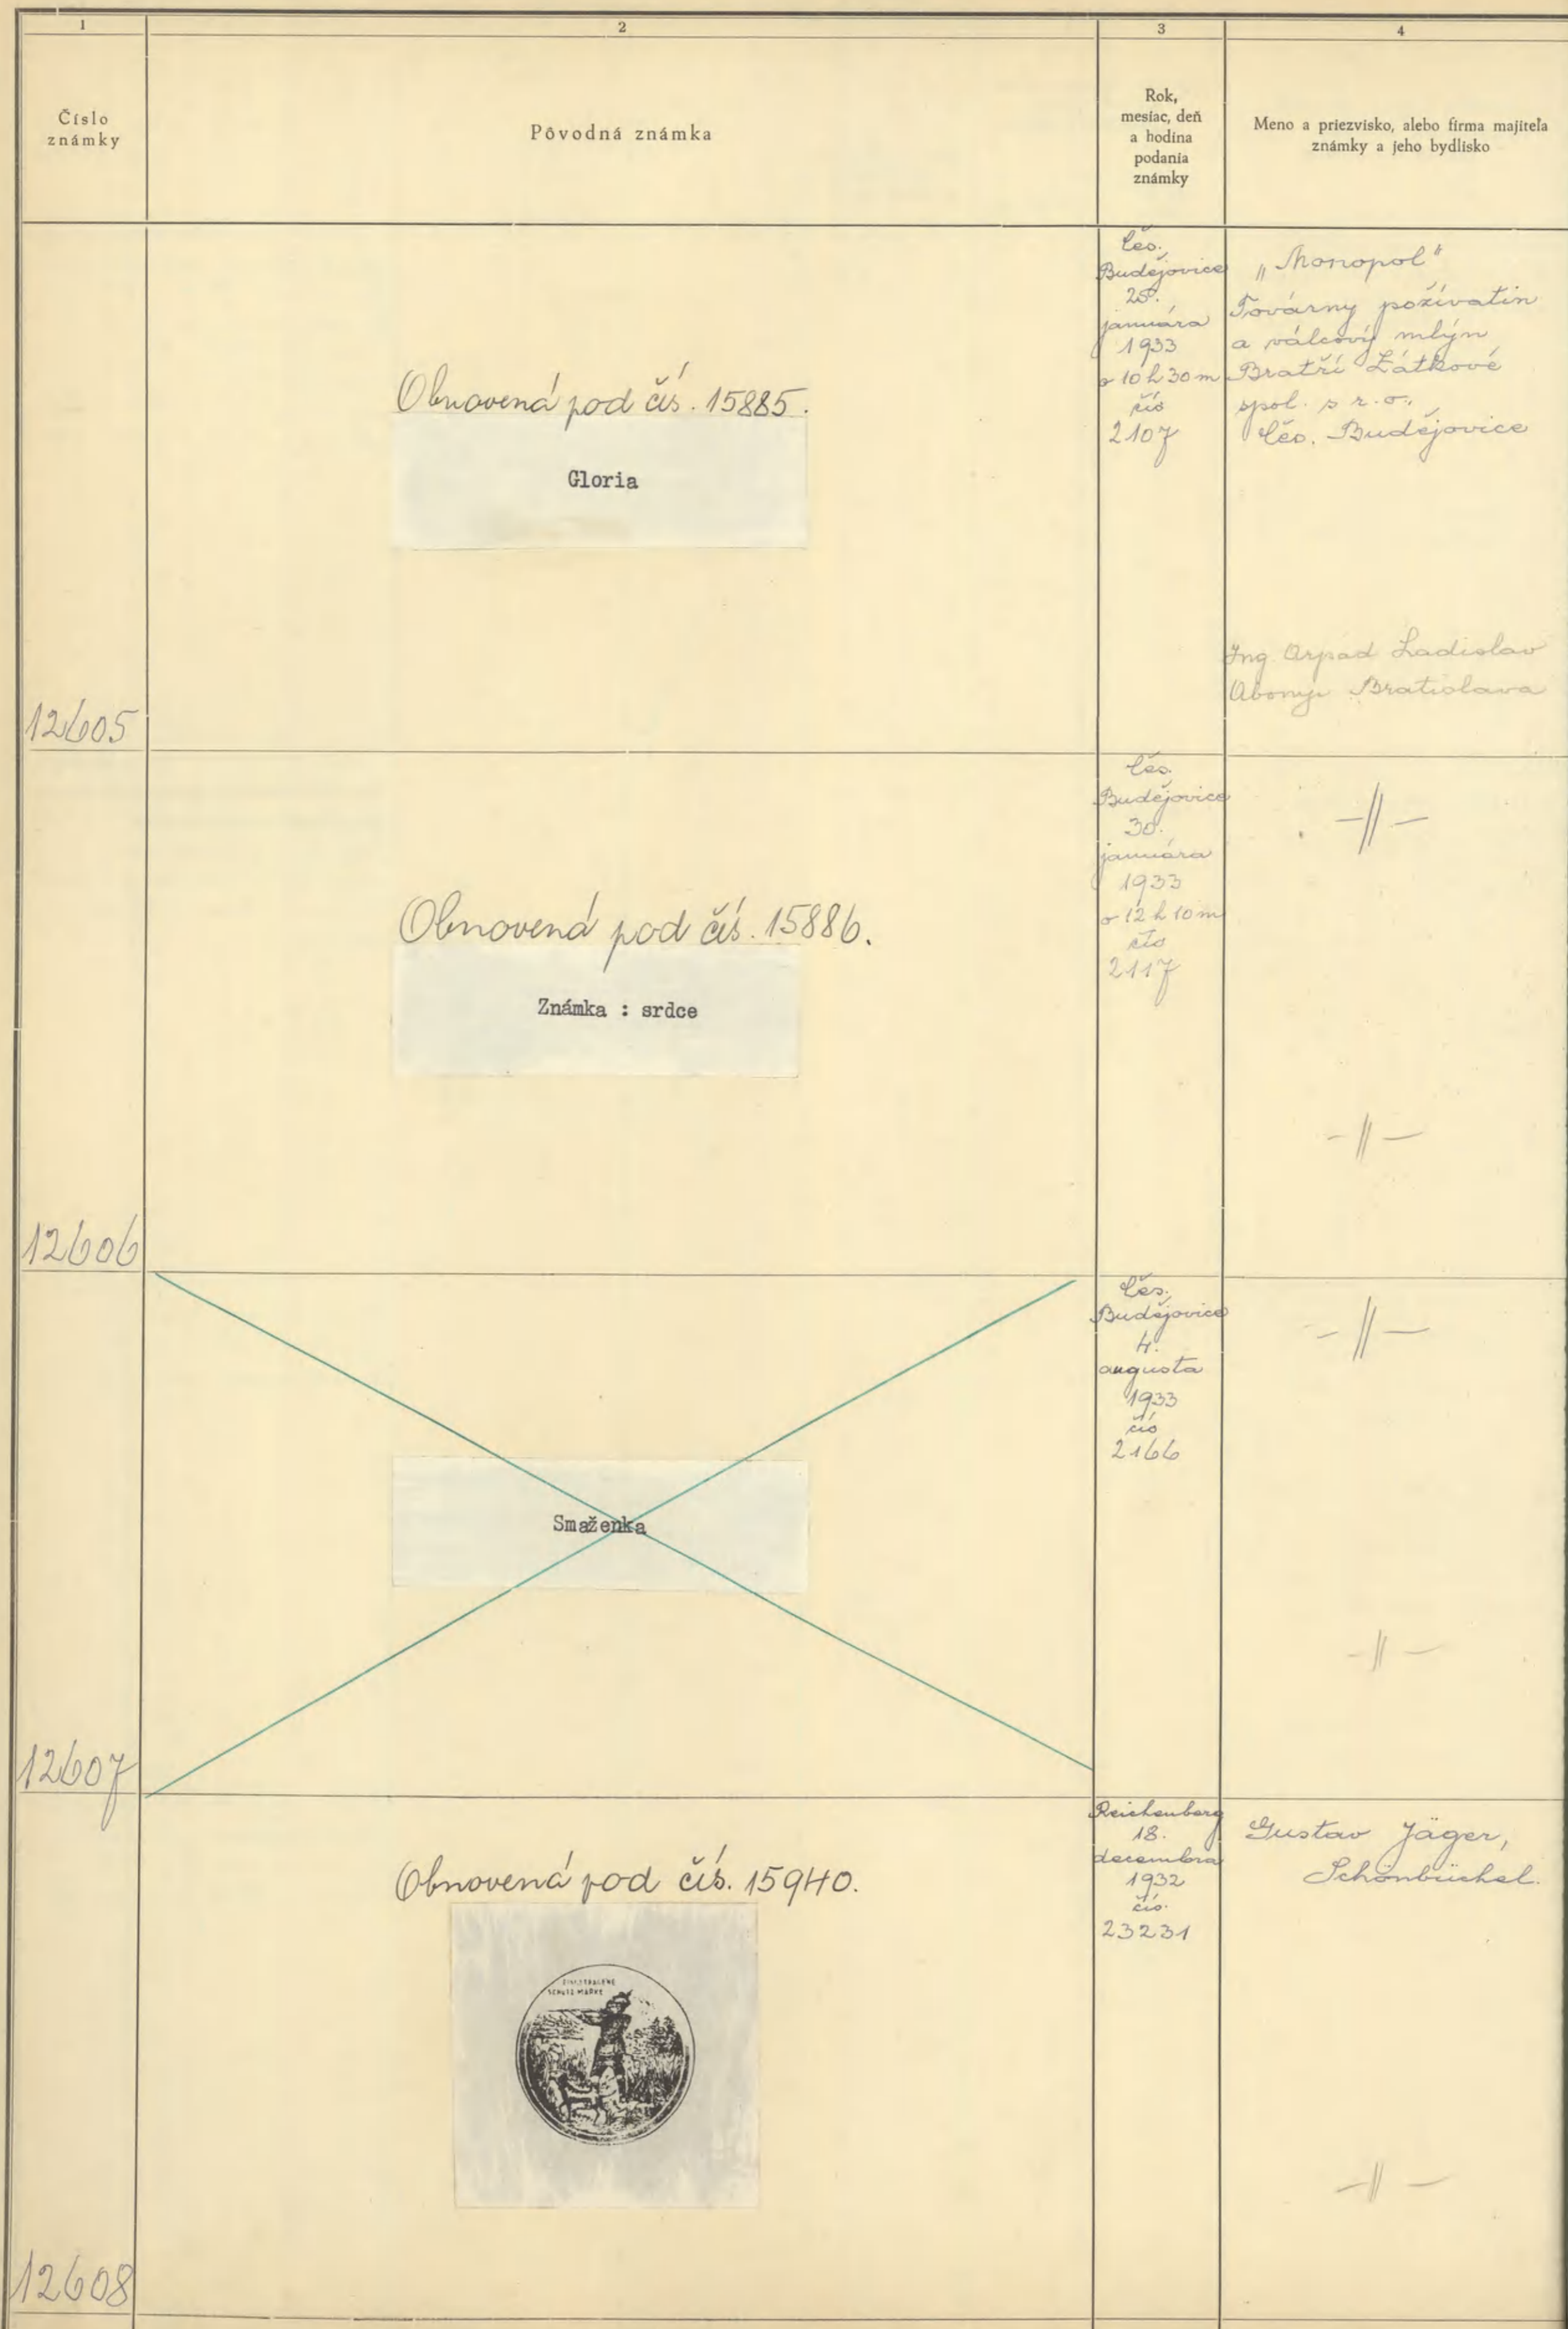 1
2
3
4
Číslo
známky
Pôvodná známka
Rok,
mesiac, deň
a hodina
podania
známky
Meno a priezvisko, alebo firma majiteľa
známky a jeho bydlisko
12605
Obnovená pod čís. 15885.
Gloria
Čes.
Budějovice
28.
januára
1933
o 10 h 30 m
čís
2107
„Monopol"
Továrny poživatin
a válcový mlýn
Bratří Zátkové
spol. s r. o.,
Čes. Budějovice
Ing Arpád Ladislav
Abonyi Bratislava
12606
Obnovená pod čís. 15886.
Známka : srdce
Čes.
Budějovice
30.
januára
1933
o 12 h 10 m
čís
2117
-||-
-||-
12607
Smaženka
Čes.
Budějovice
4.
augusta
1933
čís
2166
-||-
-||-
12608
Obnovená pod čís. 15940.
EINGETRAGENE
SCHUTZ-MARKE
Reichenberg
18.
decembra
1932
čís.
23231
Gustav Jäger,
Schönbüchel.
-||-